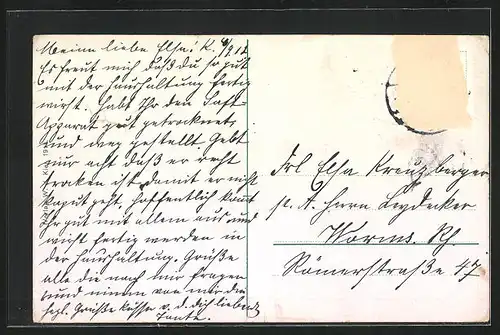 Meine liebe Elsa! K. 4/9 12
Es freut mich daß du so gut
mit der Haushaltung fertig
wirst. Habt Ihr den Saft-
Apparat gut getrocknet
und weg gestellt. Gebt
nur acht daß er recht
trocken ist damit er nicht
kaput geht, hoffentlich kommt
Ihr gut mit allem aus und
nicht fertig werden in
der Haushaltung. Grüße
alle die nach mir fragen
und nimm von mir die
herzl. Grüße Küsse v. d. dich liebende
Tante.
Frl Elsa Kreuzberger
p. A. Herrn Leydecker
Worms. Rh.
Römerstraße 47